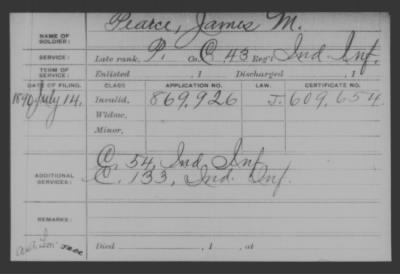 NAME OF SOLDIER: Pearce, James M.
SERVICE: Late rank, P. Co. C. 43 Reg't Ind Inf.
TERM OF SERVICE: Enlisted , 1 Discharged , 1
DATE OF FILING. CLASS. APPLICATION NO. LAW. CERTIFICATE NO.
1890 July 14, Invalid, 869,926 J. 609,654
Widow,
Minor,
C. 54, Ind Inf
ADDITIONAL SERVICES: C. 133, Ind. Inf.
REMARKS:
Died , 1 , at